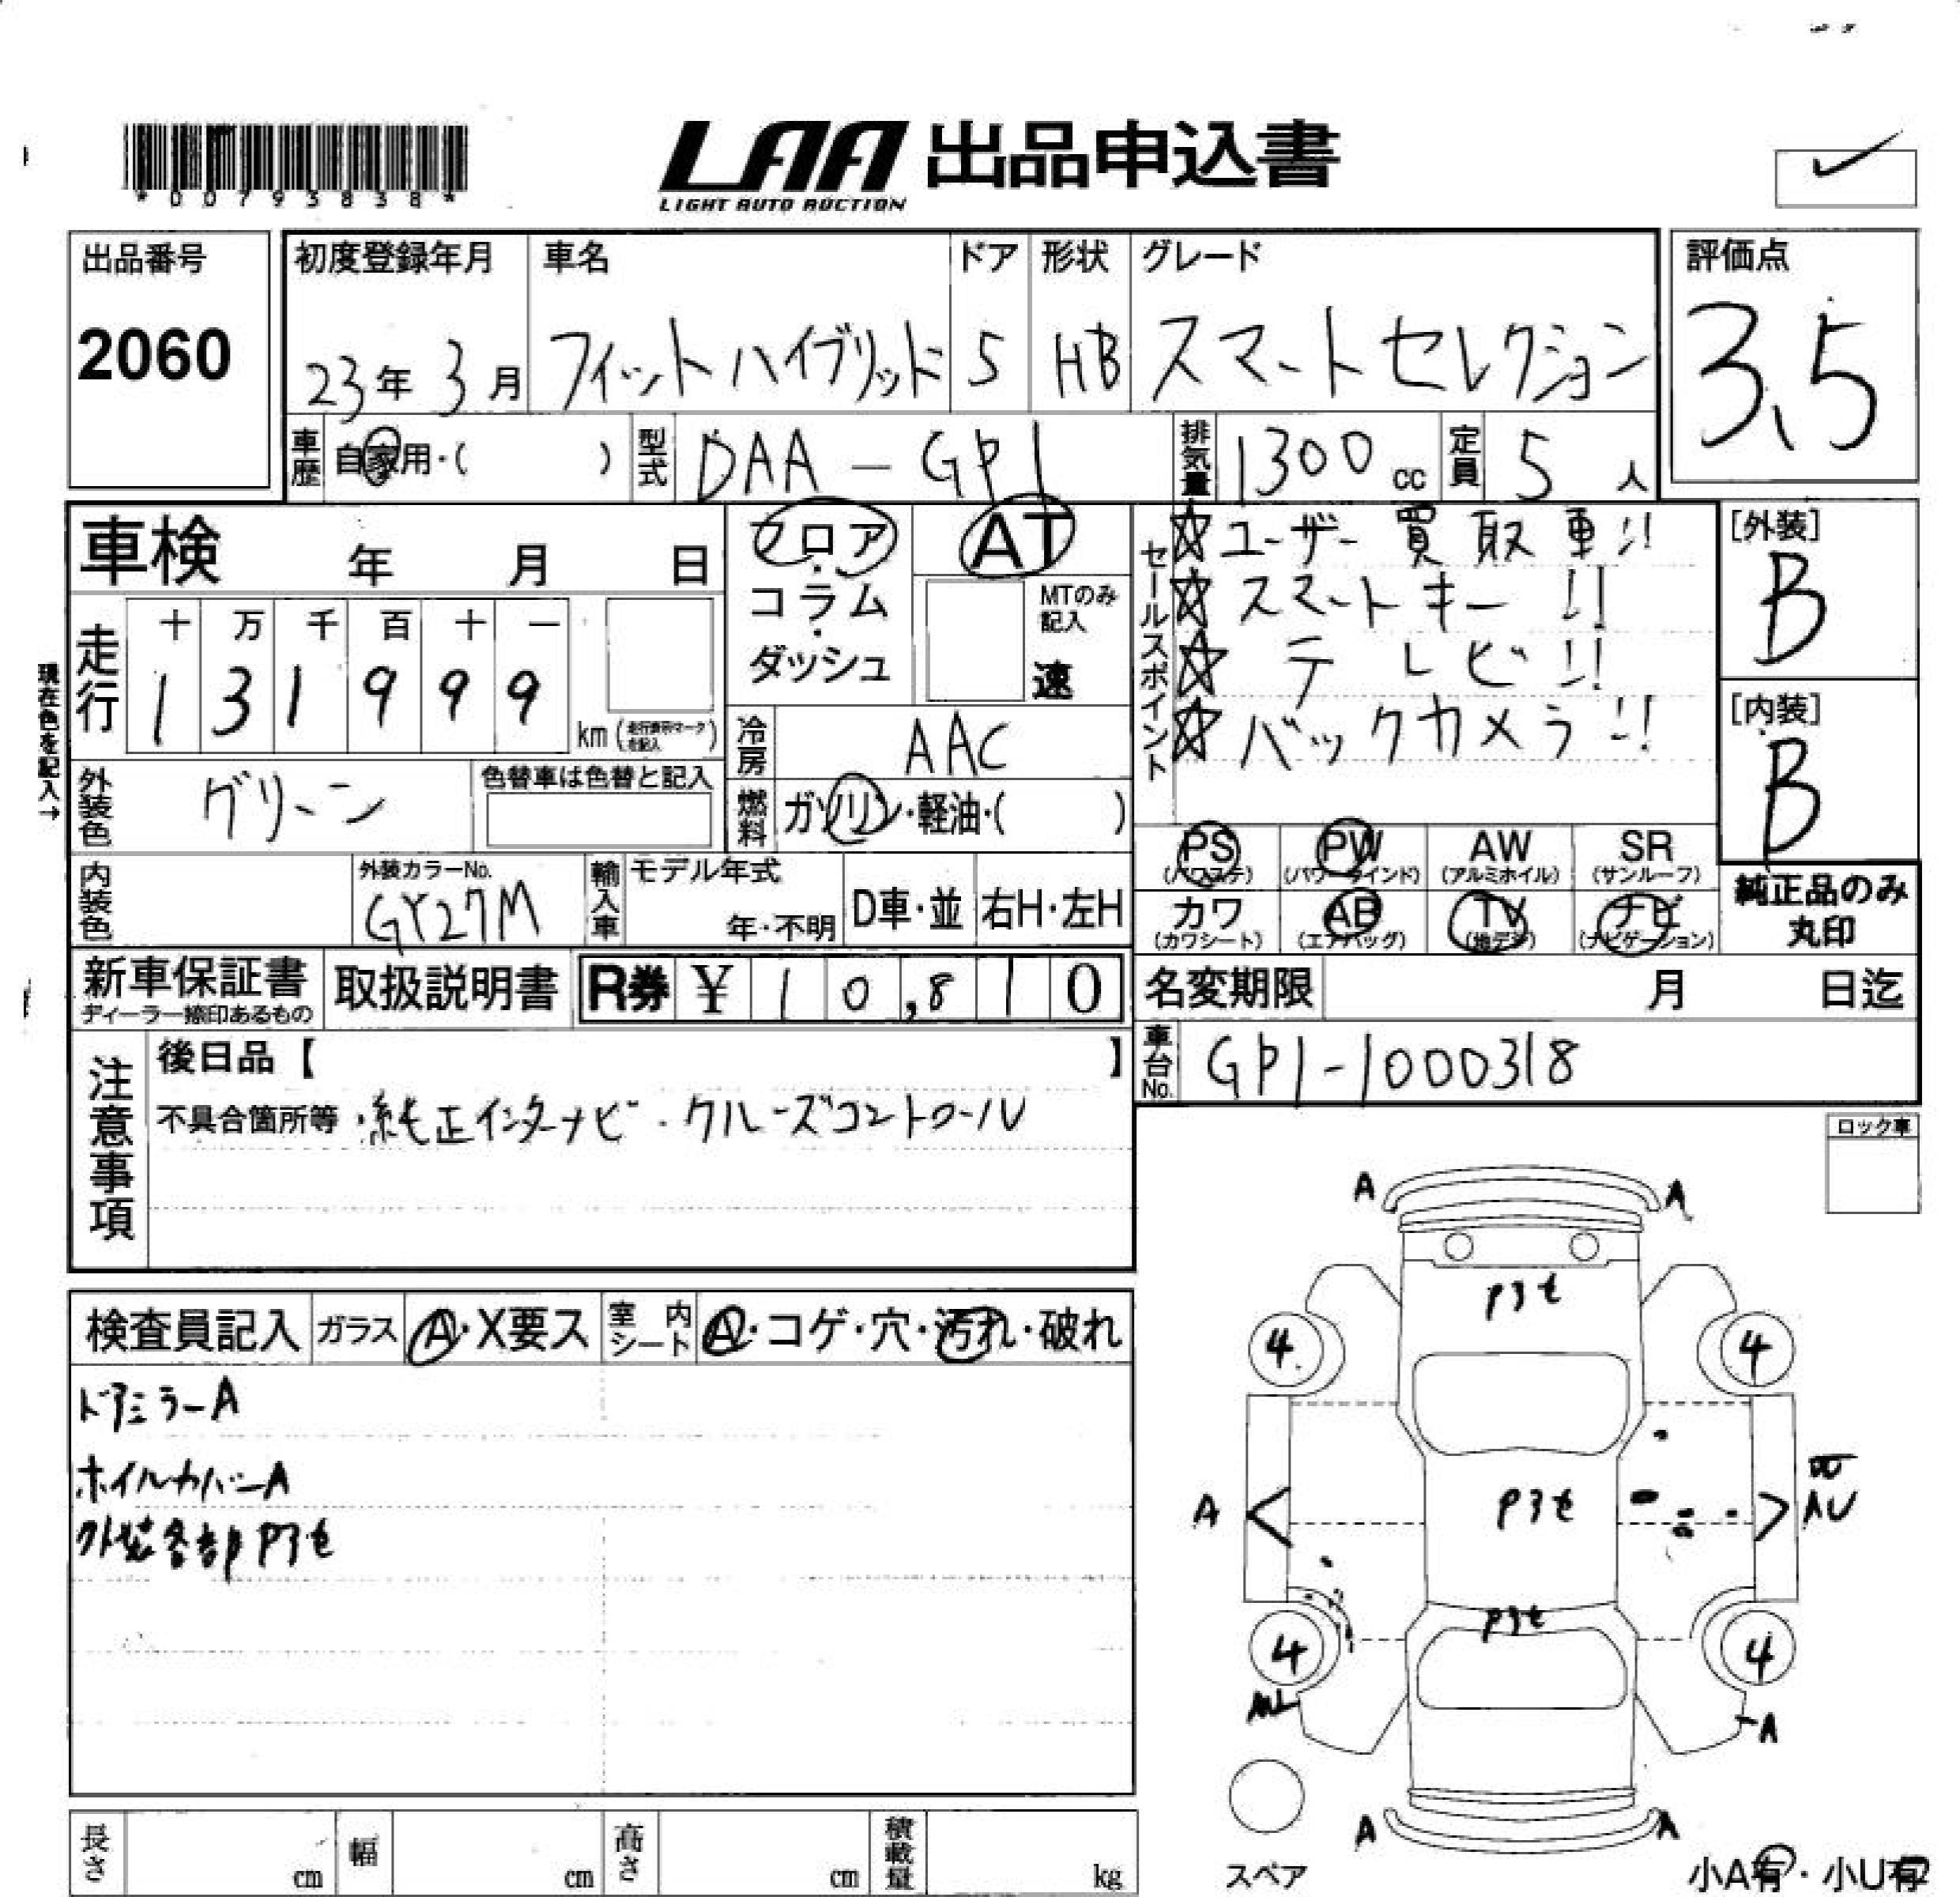 *00793838*
LAA 出品申込書
LIGHT AUTO AUCTION
出品番号
2060
初度登録年月
23年 3月
車名
フィットハイブリッド
ドア
5
形状
HB
グレード
スマートセレクション
評価点
3.5
車歴 自家用・( )
型式 DAA-GP1
排気量 1300cc
定員 5人
車検 年 月 日
フロア・コラム・ダッシュ
AT
MTのみ記入
速
セールスポイント
☆ユーザー買取車!!
☆スマートキー!!
☆テレビ!!
☆バックカメラ!!
[外装]
B
[内装]
B
現在色を記入→
走行
十 万 千 百 十 一
1 3 1 9 9 9
km
冷房 AAC
外装色 グリーン
色替車は色替と記入
燃料 ガソリン・軽油・( )
PS (パワステ)
PW (パワーウインド)
AW (アルミホイル)
SR (サンルーフ)
カワ (カワシート)
AB (エアバッグ)
TV (地デジ)
ナビ (ナビゲーション)
純正品のみ丸印
内装色
外装カラーNo.
GY27M
輸入車 モデル年式
年・不明
D車・並
右H・左H
新車保証書
ディーラー捺印あるもの
取扱説明書
R券 ¥ 10,810
名変期限 月 日迄
車台No. GP1-1000318
注意事項
後日品【 】
不具合箇所等 ・純正インターナビ ・クルーズコントロール
ロック車
検査員記入
ガラス A・X要ス
室内シート A・コゲ・穴・汚れ・破れ
ドアミラーA
ホイルカバーA
外装各部P3セ
A A
P3セ
4 4
A P3セ AU
P3セ
4 4
A
A A
スペア
小A有・小U有
長さ cm
幅 cm
高さ cm
積載量 kg